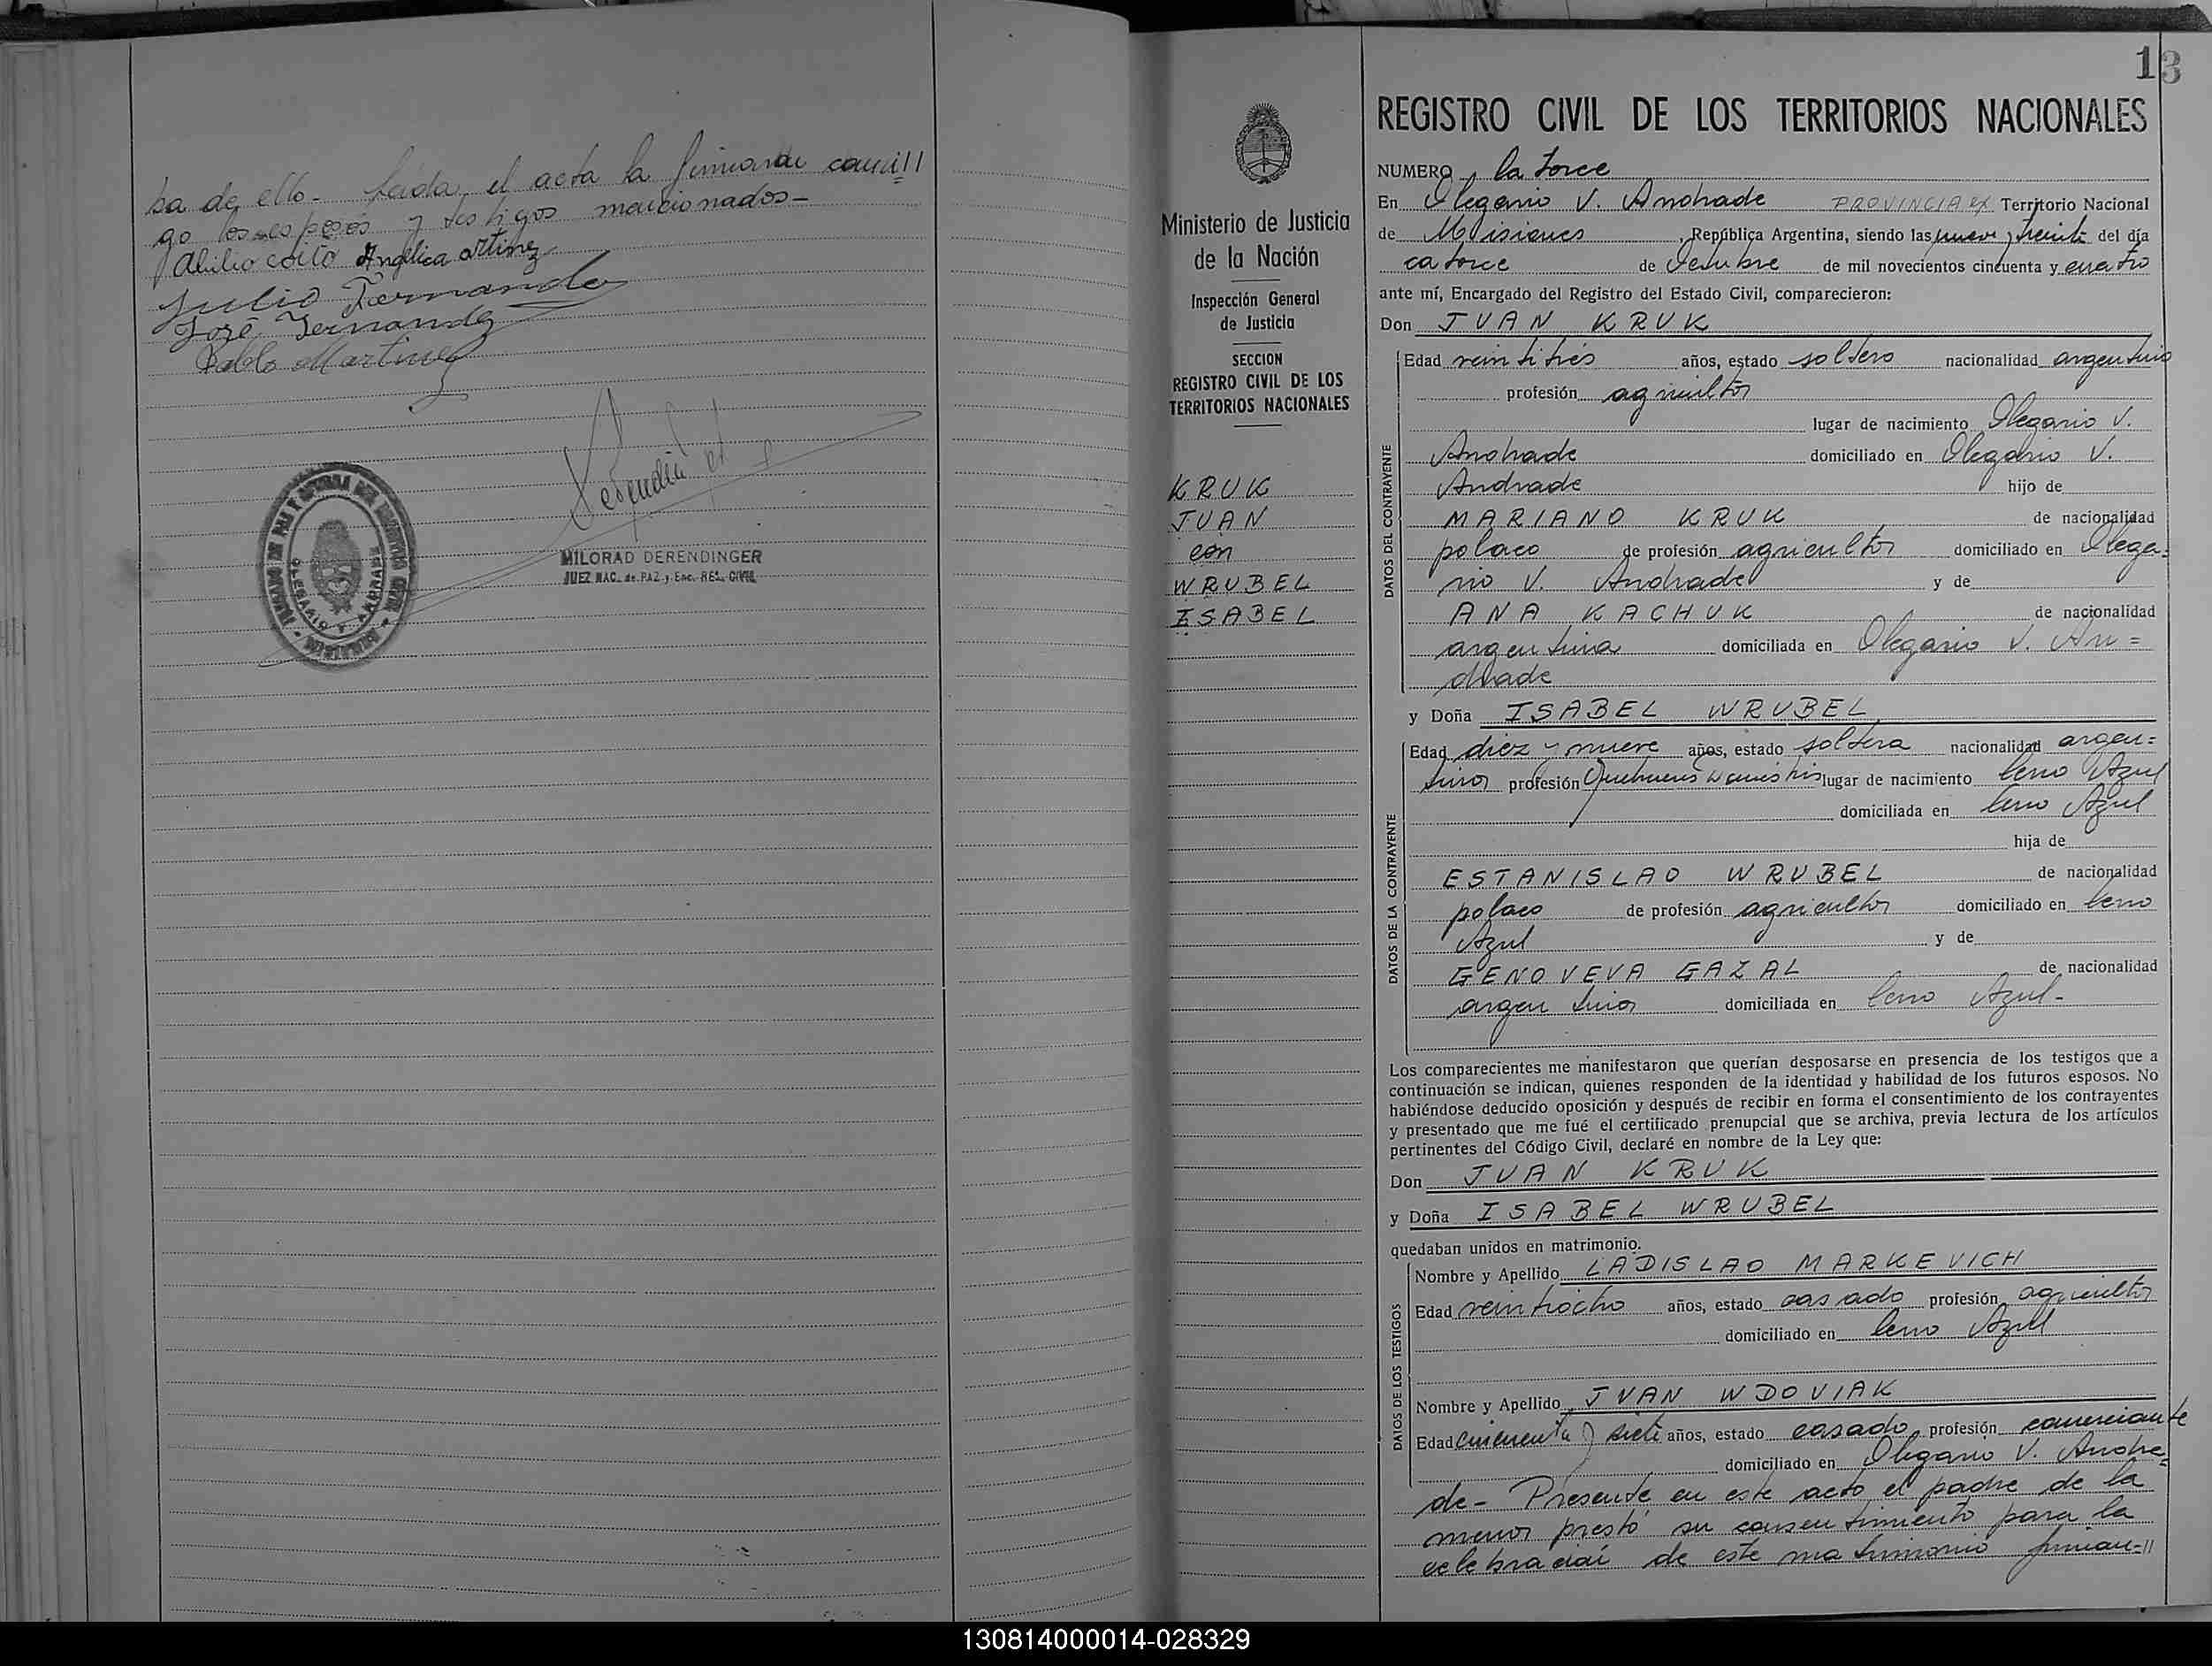 ba de ello - Leida el acta la firmaron conmi//
go los esposos y testigos mencionados -
Angelica
Julio Fernandez
José Fernandez
Pablo Martinez
MILORAD DERENDINGER
JUEZ NAC. de PAZ y Enc. REG. CIVIL
13
Ministerio de Justicia
de la Nación
Inspección General
de Justicia
SECCION
REGISTRO CIVIL DE LOS
TERRITORIOS NACIONALES
KRUK
JUAN
con
WRUBEL
ISABEL
REGISTRO CIVIL DE LOS TERRITORIOS NACIONALES
NUMERO catorce
En Olegario V. Andrade PROVINCIA ex Territorio Nacional
de Misiones, República Argentina, siendo las nueve y treinta del día
catorce de Octubre de mil novecientos cincuenta y cuatro
ante mí, Encargado del Registro del Estado Civil, comparecieron:
Don JUAN KRUK
DATOS DEL CONTRAYENTE
Edad veintitrés años, estado soltero nacionalidad argentino
profesión agricultor
lugar de nacimiento Olegario V.
Andrade domiciliado en Olegario V.
Andrade hijo de
MARIANO KRUK de nacionalidad
polaco de profesión agricultor domiciliado en Olega=
rio V. Andrade y de
ANA KACHUK de nacionalidad
argentina domiciliada en Olegario V. An=
drade
y Doña ISABEL WRUBEL
DATOS DE LA CONTRAYENTE
Edad diez y nueve años, estado soltera nacionalidad argen=
tina profesión Quehaceres domestic lugar de nacimiento Cerro Azul
domiciliada en Cerro Azul
hija de
ESTANISLAO WRUBEL de nacionalidad
polaco de profesión agricultor domiciliado en Cerro
Azul y de
GENOVEVA GAZAL de nacionalidad
argentina domiciliada en Cerro Azul -
Los comparecientes me manifestaron que querían desposarse en presencia de los testigos que a
continuación se indican, quienes responden de la identidad y habilidad de los futuros esposos. No
habiéndose deducido oposición y después de recibir en forma el consentimiento de los contrayentes
y presentado que me fué el certificado prenupcial que se archiva, previa lectura de los artículos
pertinentes del Código Civil, declaré en nombre de la Ley que:
Don JUAN KRUK
y Doña ISABEL WRUBEL
quedaban unidos en matrimonio.
DATOS DE LOS TESTIGOS
Nombre y Apellido LADISLAO MARKEVICH
Edad veintiocho años, estado casado profesión agricultor
domiciliado en Cerro Azul
Nombre y Apellido JUAN WDOVIAK
Edad cincuenta y siete años, estado casado profesión comerciante
domiciliado en Olegario V. Andra=
de - Presente en este acto el padre de la
menor prestó su consentimiento para la
celebración de este matrimonio firman=//
130814000014-028329